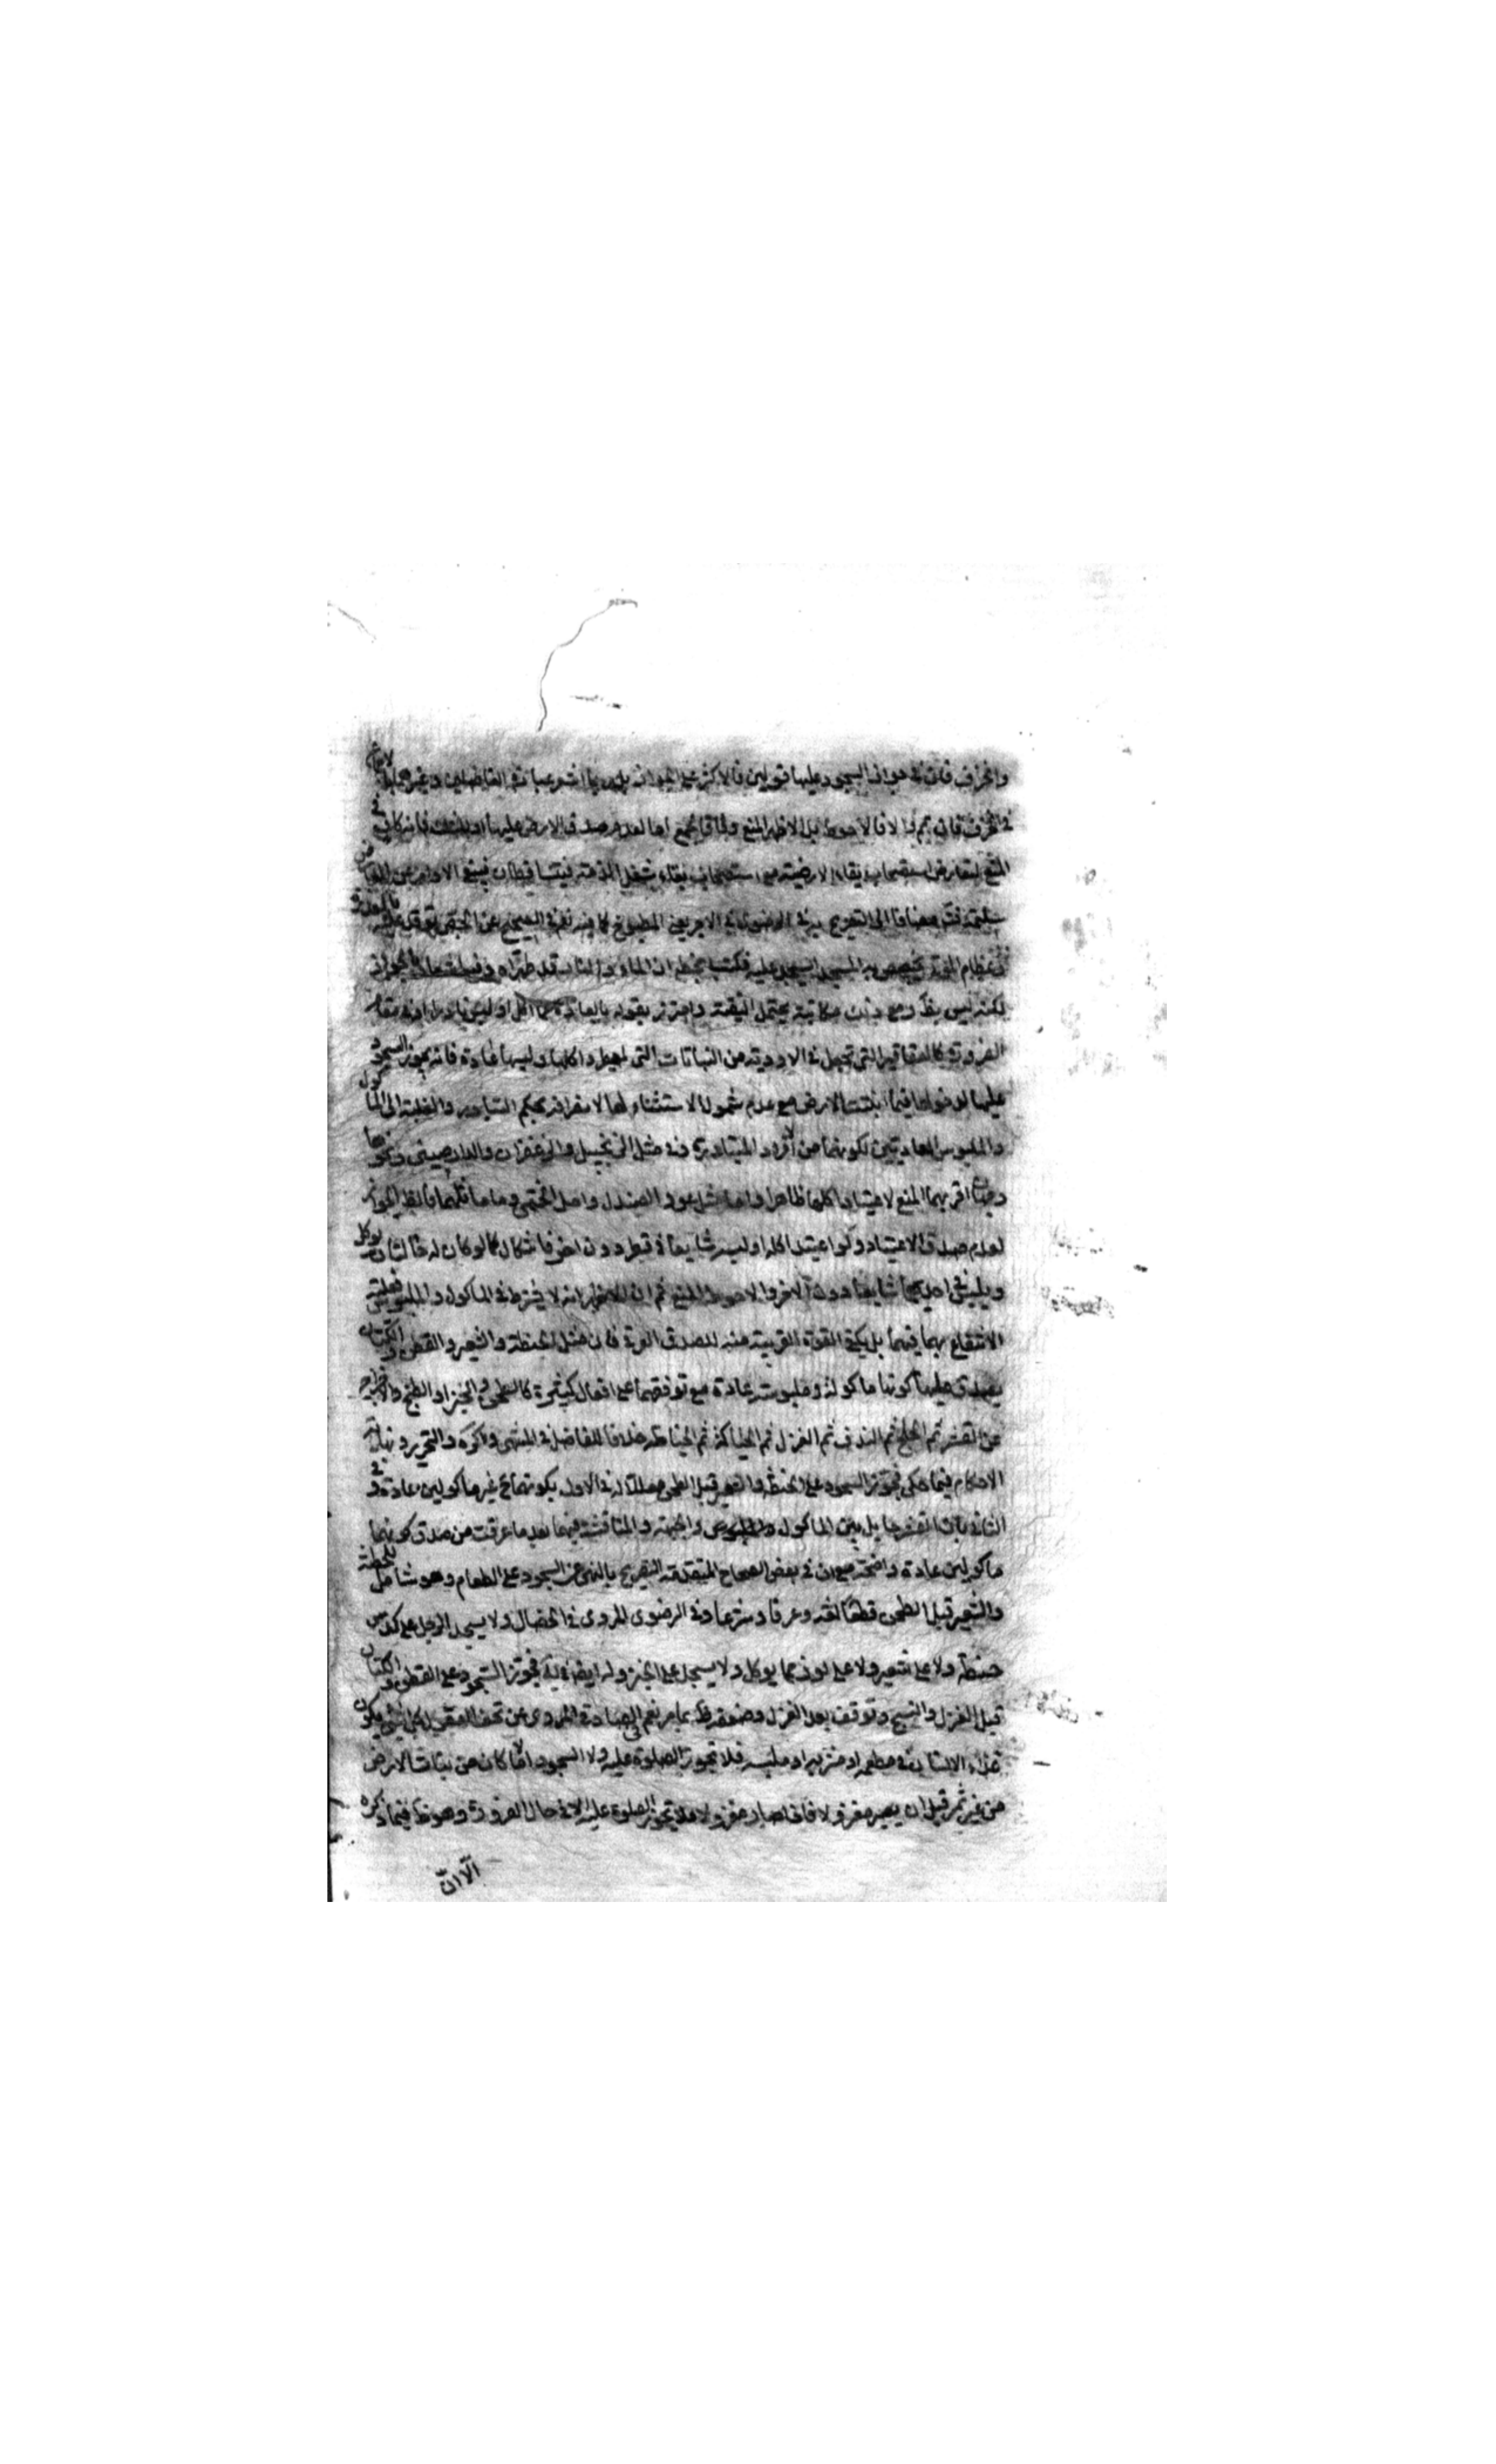 والخزف فان في جواز السجود عليها قولين فالاكثر على الجواز بل ربما اشعر عبارة الفاضلين وغيرهما بالاجماع
في الخزف فان تم والا فالاحوط بل الاظهر المنع وفاقا لجمع اما لعدم صدق الارض عليها او للشك فانه كاف في
المنع لتعارض استصحاب بقاء الارضية مع استصحاب بقاء شغل الذمة فيتساقطان فيبقى الاوامر عن المعارض
سليمة فتم مضافا الى التصريح به في الرضوي في الاجر يعني المطبوخ كما فيه نعم في الصحيح عن الجص توقد عليه بالعذرة
وعظام الموتى يجصص به المسجد ايسجد عليه فكتب بخطه ان الماء والنار قد طهراه
لكنه ليس بظ ومع ذلك مكاتبة يحتمل التقية واحترز بقوله بالعادة عما اكل او لبس نادرا او في مقام
الضرورة كالعقاقير التي تجعل في الادوية من النباتات التي لم يطرد اكلها ولبسها عادة فانه يجوز السجود
عليها لدخولها فيما انبتت الارض مع عدم شمول الاستثناء لها لانصرافه بحكم التبادر والغلبة الى الماكول
والملبوس العاديين لكونهما من الافراد المتبادرة وفي مثل الزنجبيل والزعفران والدارصيني ونحوها
وجهان اقربهما المنع لاعتياد اكلها ظاهرا واما مثل عود الصندل واصل الخطمي وما ماثلهما فالظ الجواز
لعدم صدق الاعتياد ولو اعتيد اكله او لبسه شايعا في قطر دون اخر فاشكال كما لو كان له حالتان يوكل
ويلبس في احديهما شايعا دون الاخر والاحوط المنع ثم ان الاظهر انه لا يشترط في الماكول والملبوس فعلية
الانتفاع بهما فيهما بل يكفي القوة القريبة منه للصدق العرفي فان مثل الحنطة والشعير والقطن والكتان
يصدق عليها كونها ماكولة وملبوسة عادة مع توقفهما على افعال كثيرة كالطحن والخبز او الطبخ والاخراج
عن القشر ثم الحلج ثم الندف ثم الغزل ثم الحياكة ثم الخياطة خلافا للفاضل في المنتهى وكره والتحرير ونهاية
الاحكام فيما حكى فجوز السجود على الحنطة والشعير قبل الطحن معللا له في الاول بكونهما ح غير ماكولين عادة وفي
الثاني بان القشر حايل بين الماكول والجبهة والمناقشة فيهما بعد ما عرفت من صدق كونهما
ماكولين عادة واضحة مع ان في بعض الصحاح المتقدمة التصريح بالنهي عن السجود على الطعام وهو شامل للحنطة
والشعير قبل الطحن قطعا لغة وعرفا وشرعا وفي الرضوي المروي في الخصال ولا يسجد الرجل على كدس
حنطة ولا على شعير ولا على لون مما يوكل ولا يسجد على الخبز وله ايضا في ية فجوز السجود على القطن والكتان
قبل الغزل والنسج وتوقف بعد الغزل وضعفه ظ بما مر نعم في الصادقي المروي عن تحف العقول كل شيء يكون
غذاء الانسان في مطعمه او مشربه او ملبسه فلا تجوز الصلوة عليه ولا السجود الا ما كان من نبات الارض
من غير ثمر قبل ان يصير مغزولا فاذا صار مغزولا فلا تجوز الصلوة عليه الا في حال الضرورة وهو ظ فيما ذكره
الا ان